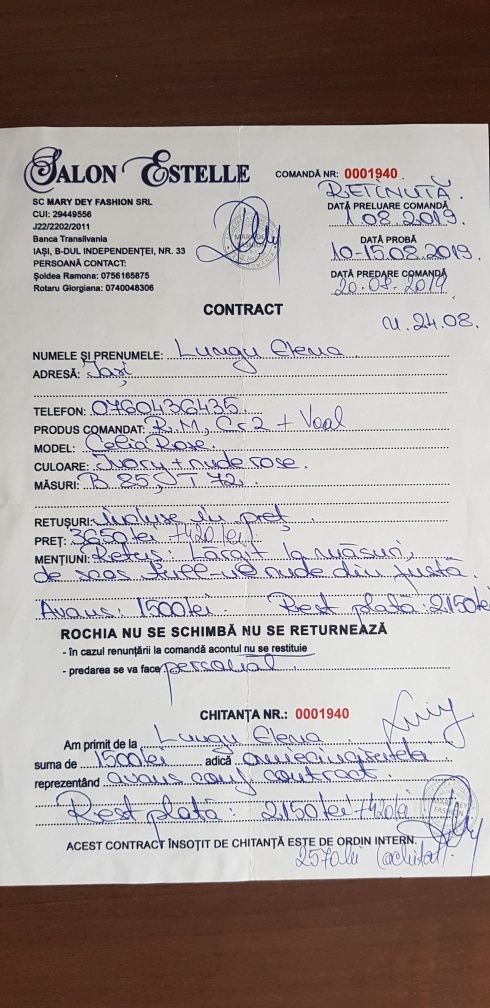 SALON ESTELLE
COMANDĂ NR: 0001940
REȚINUTĂ
SC MARY DEY FASHION SRL
CUI: 29449556
J22/2202/2011
Banca Transilvania
IAȘI, B-DUL INDEPENDENȚEI, NR. 33
PERSOANĂ CONTACT:
Șoldea Ramona: 0756165875
Rotaru Giorgiana: 0740048306
DATĂ PRELUARE COMANDĂ
1.08.2019.
DATĂ PROBĂ
10-15.08.2019.
DATĂ PREDARE COMANDĂ
20.08.2019
CONTRACT
N. 24.08.
NUMELE ȘI PRENUMELE: Lungu Elena
ADRESĂ: Iași
TELEFON: 0760436435
PRODUS COMANDAT: R.M, Cr2 + Voal
MODEL: Celia Rose.
CULOARE: Ivory + nude rose.
MĂSURI: B 85, T 72
RETUȘURI: incluse în preț.
PREȚ: 3650 lei +420 lei
MENȚIUNI: Retuș: Lărgit la măsuri,
de scos tull-ul nude din fustă.
Avans: 1500 lei. Rest plată: 2150 lei
ROCHIA NU SE SCHIMBĂ NU SE RETURNEAZĂ
- în cazul renunțării la comandă acontul nu se restituie
- predarea se va face personal
CHITANȚA NR.: 0001940
Am primit de la Lungu Elena
suma de 1500 lei adică
reprezentând avans conf contract.
Rest plată: 2150 lei +420 lei
ACEST CONTRACT ÎNSOȚIT DE CHITANȚĂ ESTE DE ORDIN INTERN.
2570 lei (achitat).